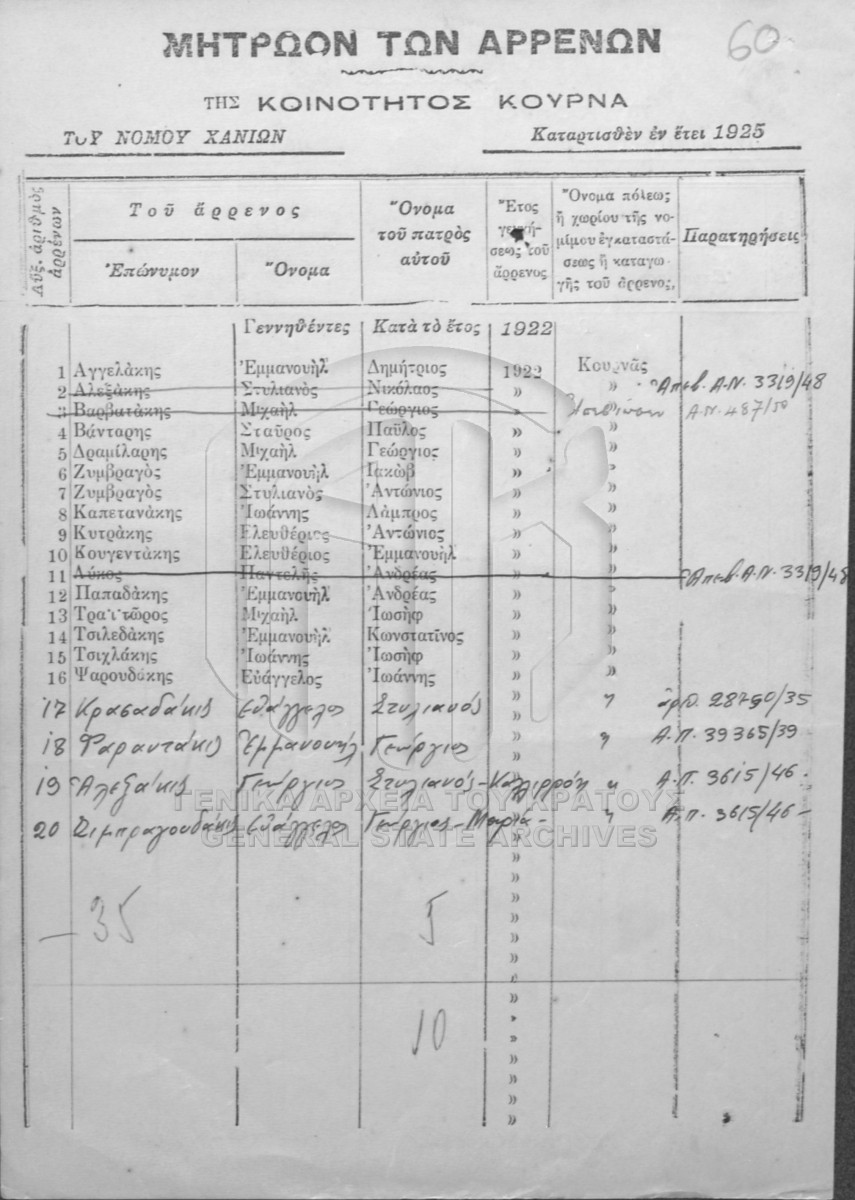 60
ΜΗΤΡΩΟΝ ΤΩΝ ΑΡΡΕΝΩΝ
ΤΗΣ ΚΟΙΝΟΤΗΤΟΣ ΚΟΥΡΝΑ
ΤΟΥ ΝΟΜΟΥ ΧΑΝΙΩΝ Καταρτισθὲν ἐν ἔτει 1925
Αὔξ. ἀριθμὸς ἀρρένων
Τοῦ ἄρρενος
Ἐπώνυμον Ὄνομα
Ὄνομα
τοῦ πατρὸς
αὐτοῦ
Ἔτος
γεννή-
σεως τοῦ
ἄρρενος
Ὄνομα πόλεως
ἢ χωρίου τῆς νο-
μίμου ἐγκαταστά-
σεως ἢ καταγω-
γῆς τοῦ ἄρρενος,
Παρατηρήσεις
Γεννηθέντες Κατὰ τὸ ἔτος 1922
1 Αγγελάκης Ἐμμανουὴλ Δημήτριος 1922 Κουρνᾶς
2 Αλεξάκης Στυλιανὸς Νικόλαος » » Ἀπεβ. Α.Ν. 3319/48
3 Βαρβατάκης Μιχαὴλ Γεώργιος » Α.Ν. 487/50
4 Βάνταρης Σταῦρος Παῦλος » »
5 Δραμίλαρης Μιχαὴλ Γεώργιος » »
6 Ζυμβραγὸς Ἐμμανουὴλ Ιακὼβ » »
7 Ζυμβραγὸς Στυλιανὸς Ἀντώνιος » »
8 Καπετανάκης Ἰωάννης Λάμπρος » »
9 Κυτράκης Ελευθέριος Ἀντώνιος » »
10 Κουγεντάκης Ελευθέριος Ἐμμανουὴλ » »
11 Λύκος Παντελῆς Ἀνδρέας » » Ἀπεβ. Α.Ν. 3319/48
12 Παπαδάκης Ἐμμανουὴλ Ἀνδρέας » »
13 Τραϊτῶρος Μιχαὴλ Ἰωσὴφ » »
14 Τσιλεδάκης Ἐμμανουὴλ Κωνσταντῖνος » »
15 Τσιχλάκης Ἰωάννης Ἰωσὴφ » »
16 Ψαρουδάκης Εὐάγγελος Ἰωάννης » »
17 Κρασαδάκις Εὐάγγελος Στυλιανός » " ἀρθ. 28790/35
18 Φαραντάκις Ἐμμανουήλ Γεώργιος » " Α.Π. 39365/39
19 Ἀλεξάκις Γεώργιος Στυλιανός - Καλιρρόη » " Α.Π. 3615/46 -
20 Γεώργιος - Μαρία - Εὐάγγελος » " Α.Π. 3615/46 -
ΓΕΝΙΚΑ ΑΡΧΕΙΑ ΤΟΥ ΚΡΑΤΟΥΣ
GENERAL STATE ARCHIVES
35 5
10